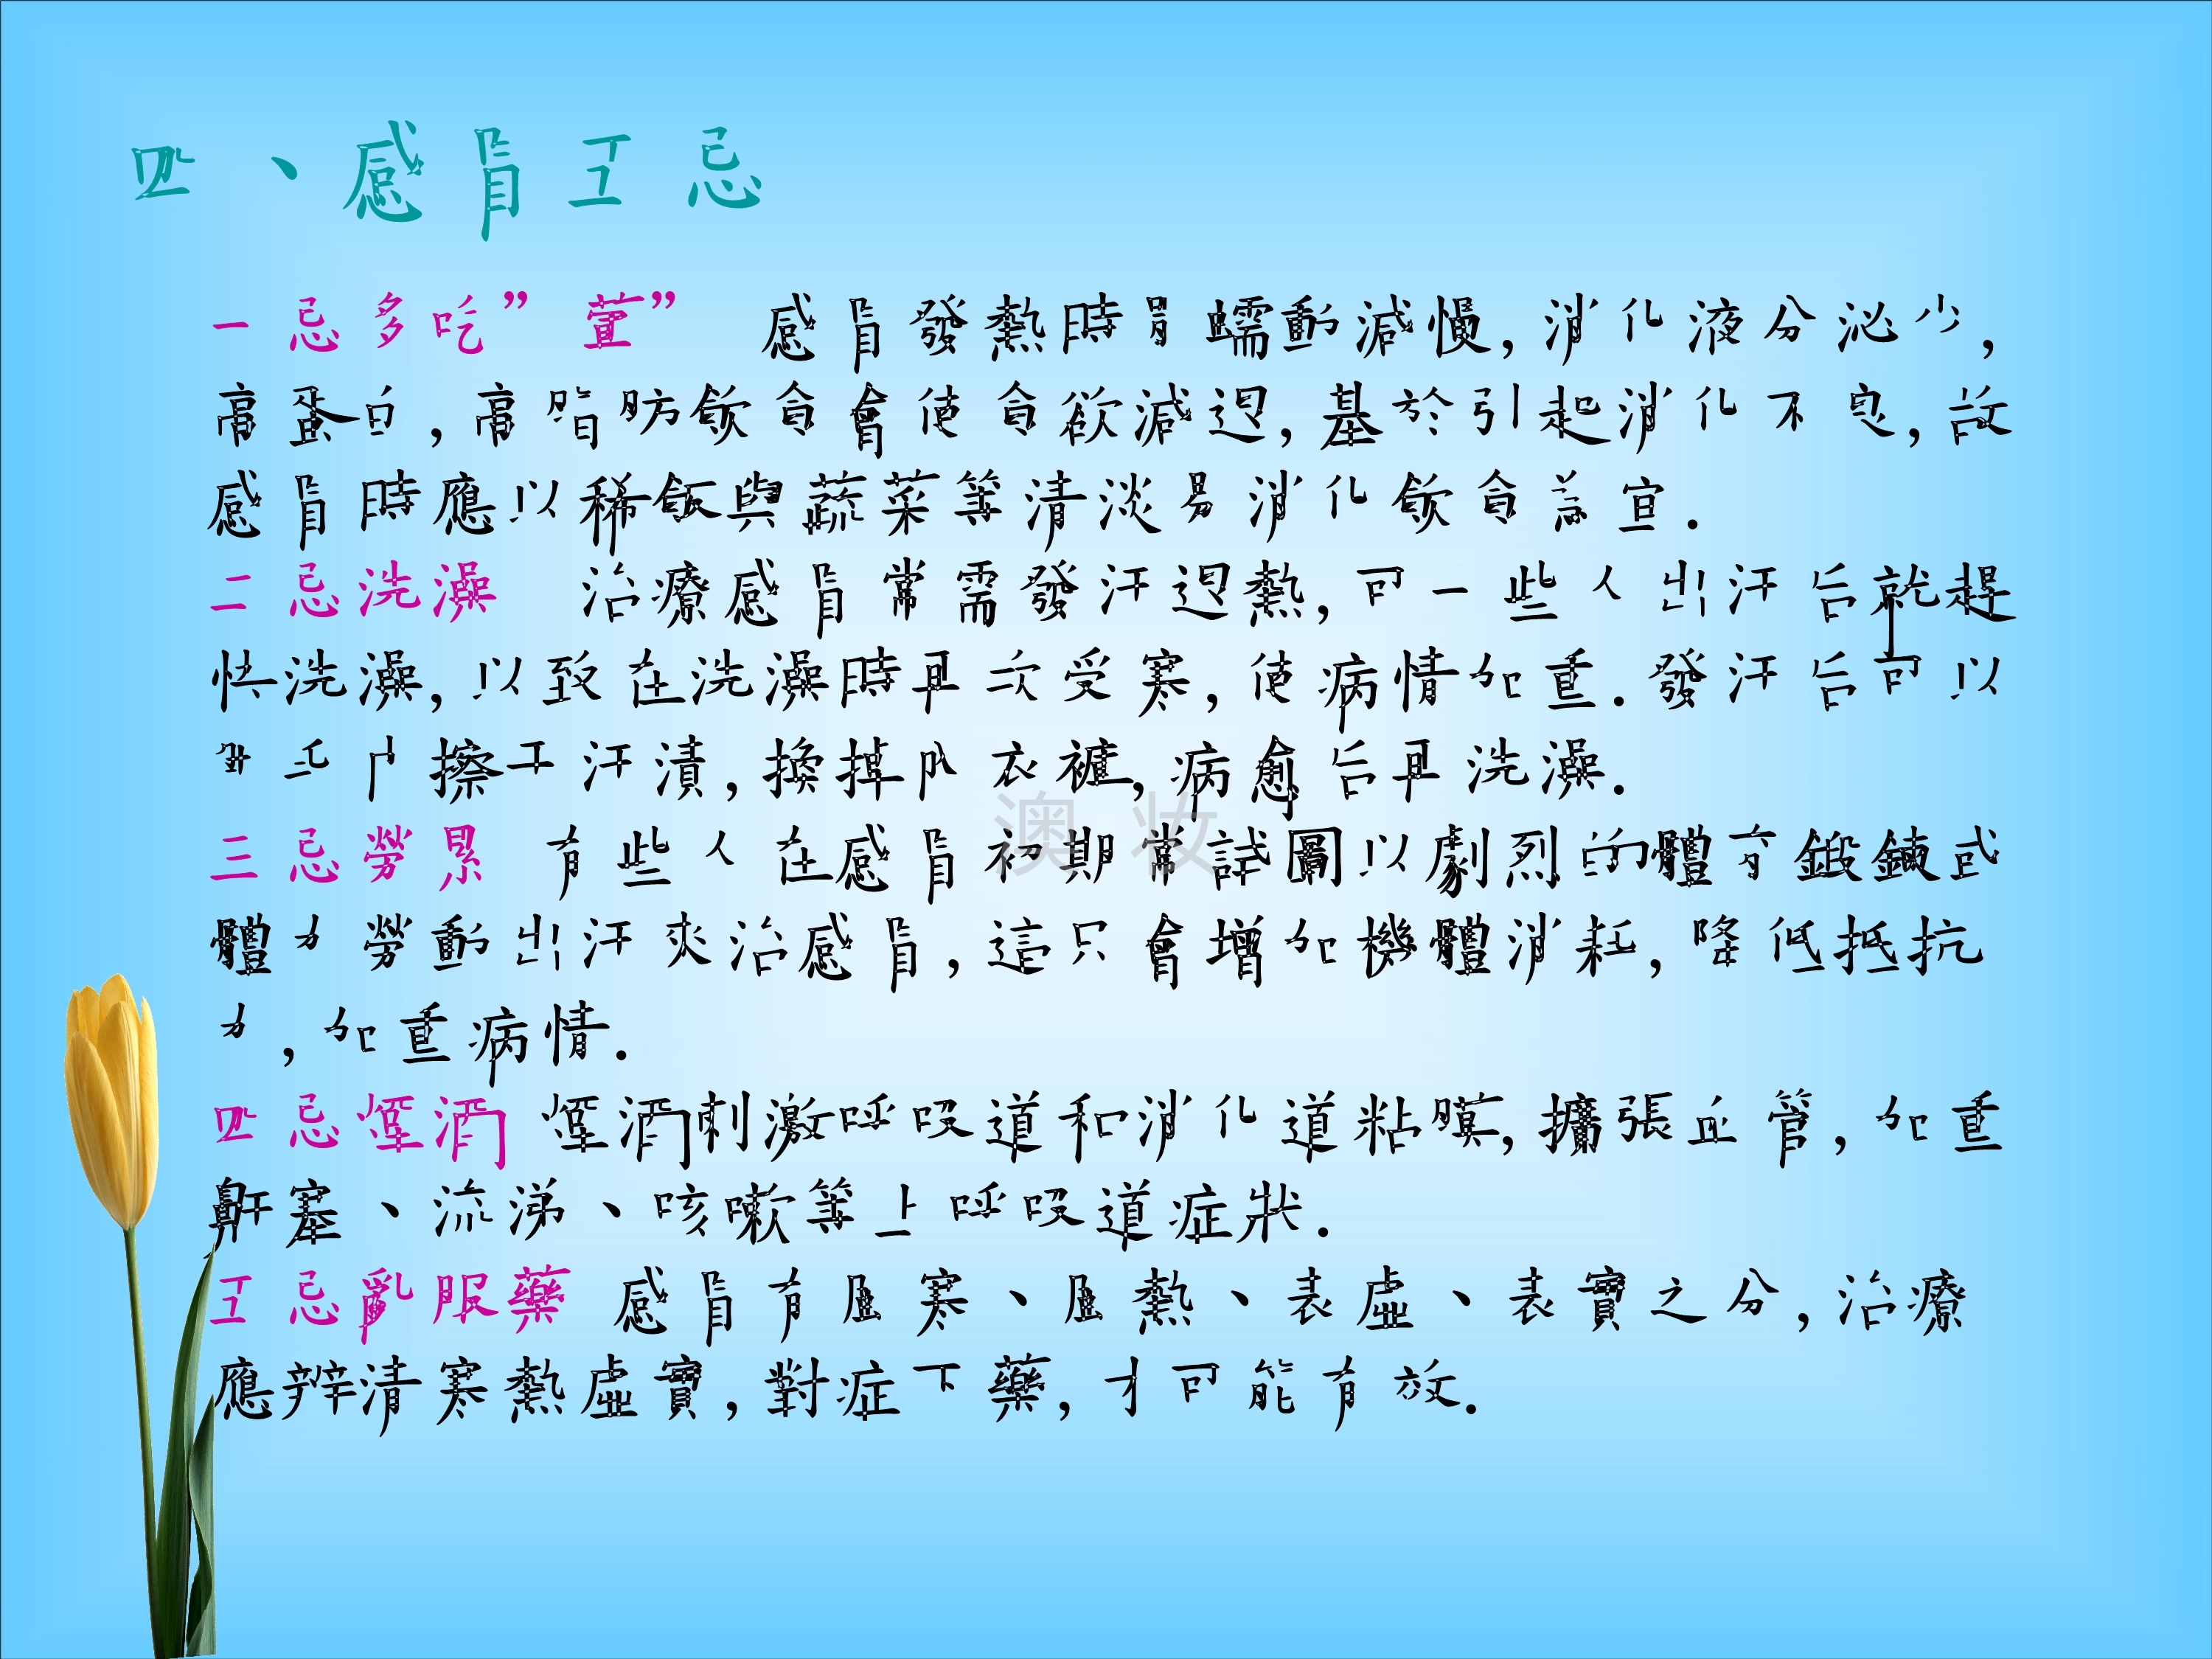 四、感冒五忌
一忌多吃”葷” 感冒發熱時胃蠕動減慢,消化液分泌少,
高蛋白,高脂肪飲食會使食欲減退,甚於引起消化不良,故
感冒時應以稀飯與蔬菜等清淡易消化飲食為宜.
二忌洗澡 治療感冒常需發汗退熱,可一些人出汗后就趕
快洗澡,以致在洗澡時再次受寒,使病情加重.發汗后可以
用毛巾擦干汗漬,換掉內衣褲,病愈后再洗澡.
三忌勞累 有些人在感冒初期常試圖以劇烈的體育鍛鍊或
體力勞動出汗來治感冒,這只會增加機體消耗,降低抵抗
力,加重病情.
四忌煙酒 煙酒刺激呼吸道和消化道粘膜,擴張血管,加重
鼻塞、流涕、咳嗽等上呼吸道症狀.
五忌亂服藥 感冒有風寒、風熱、表虛、表實之分,治療
應辨清寒熱虛實,對症下藥,才可能有效.
澳妆